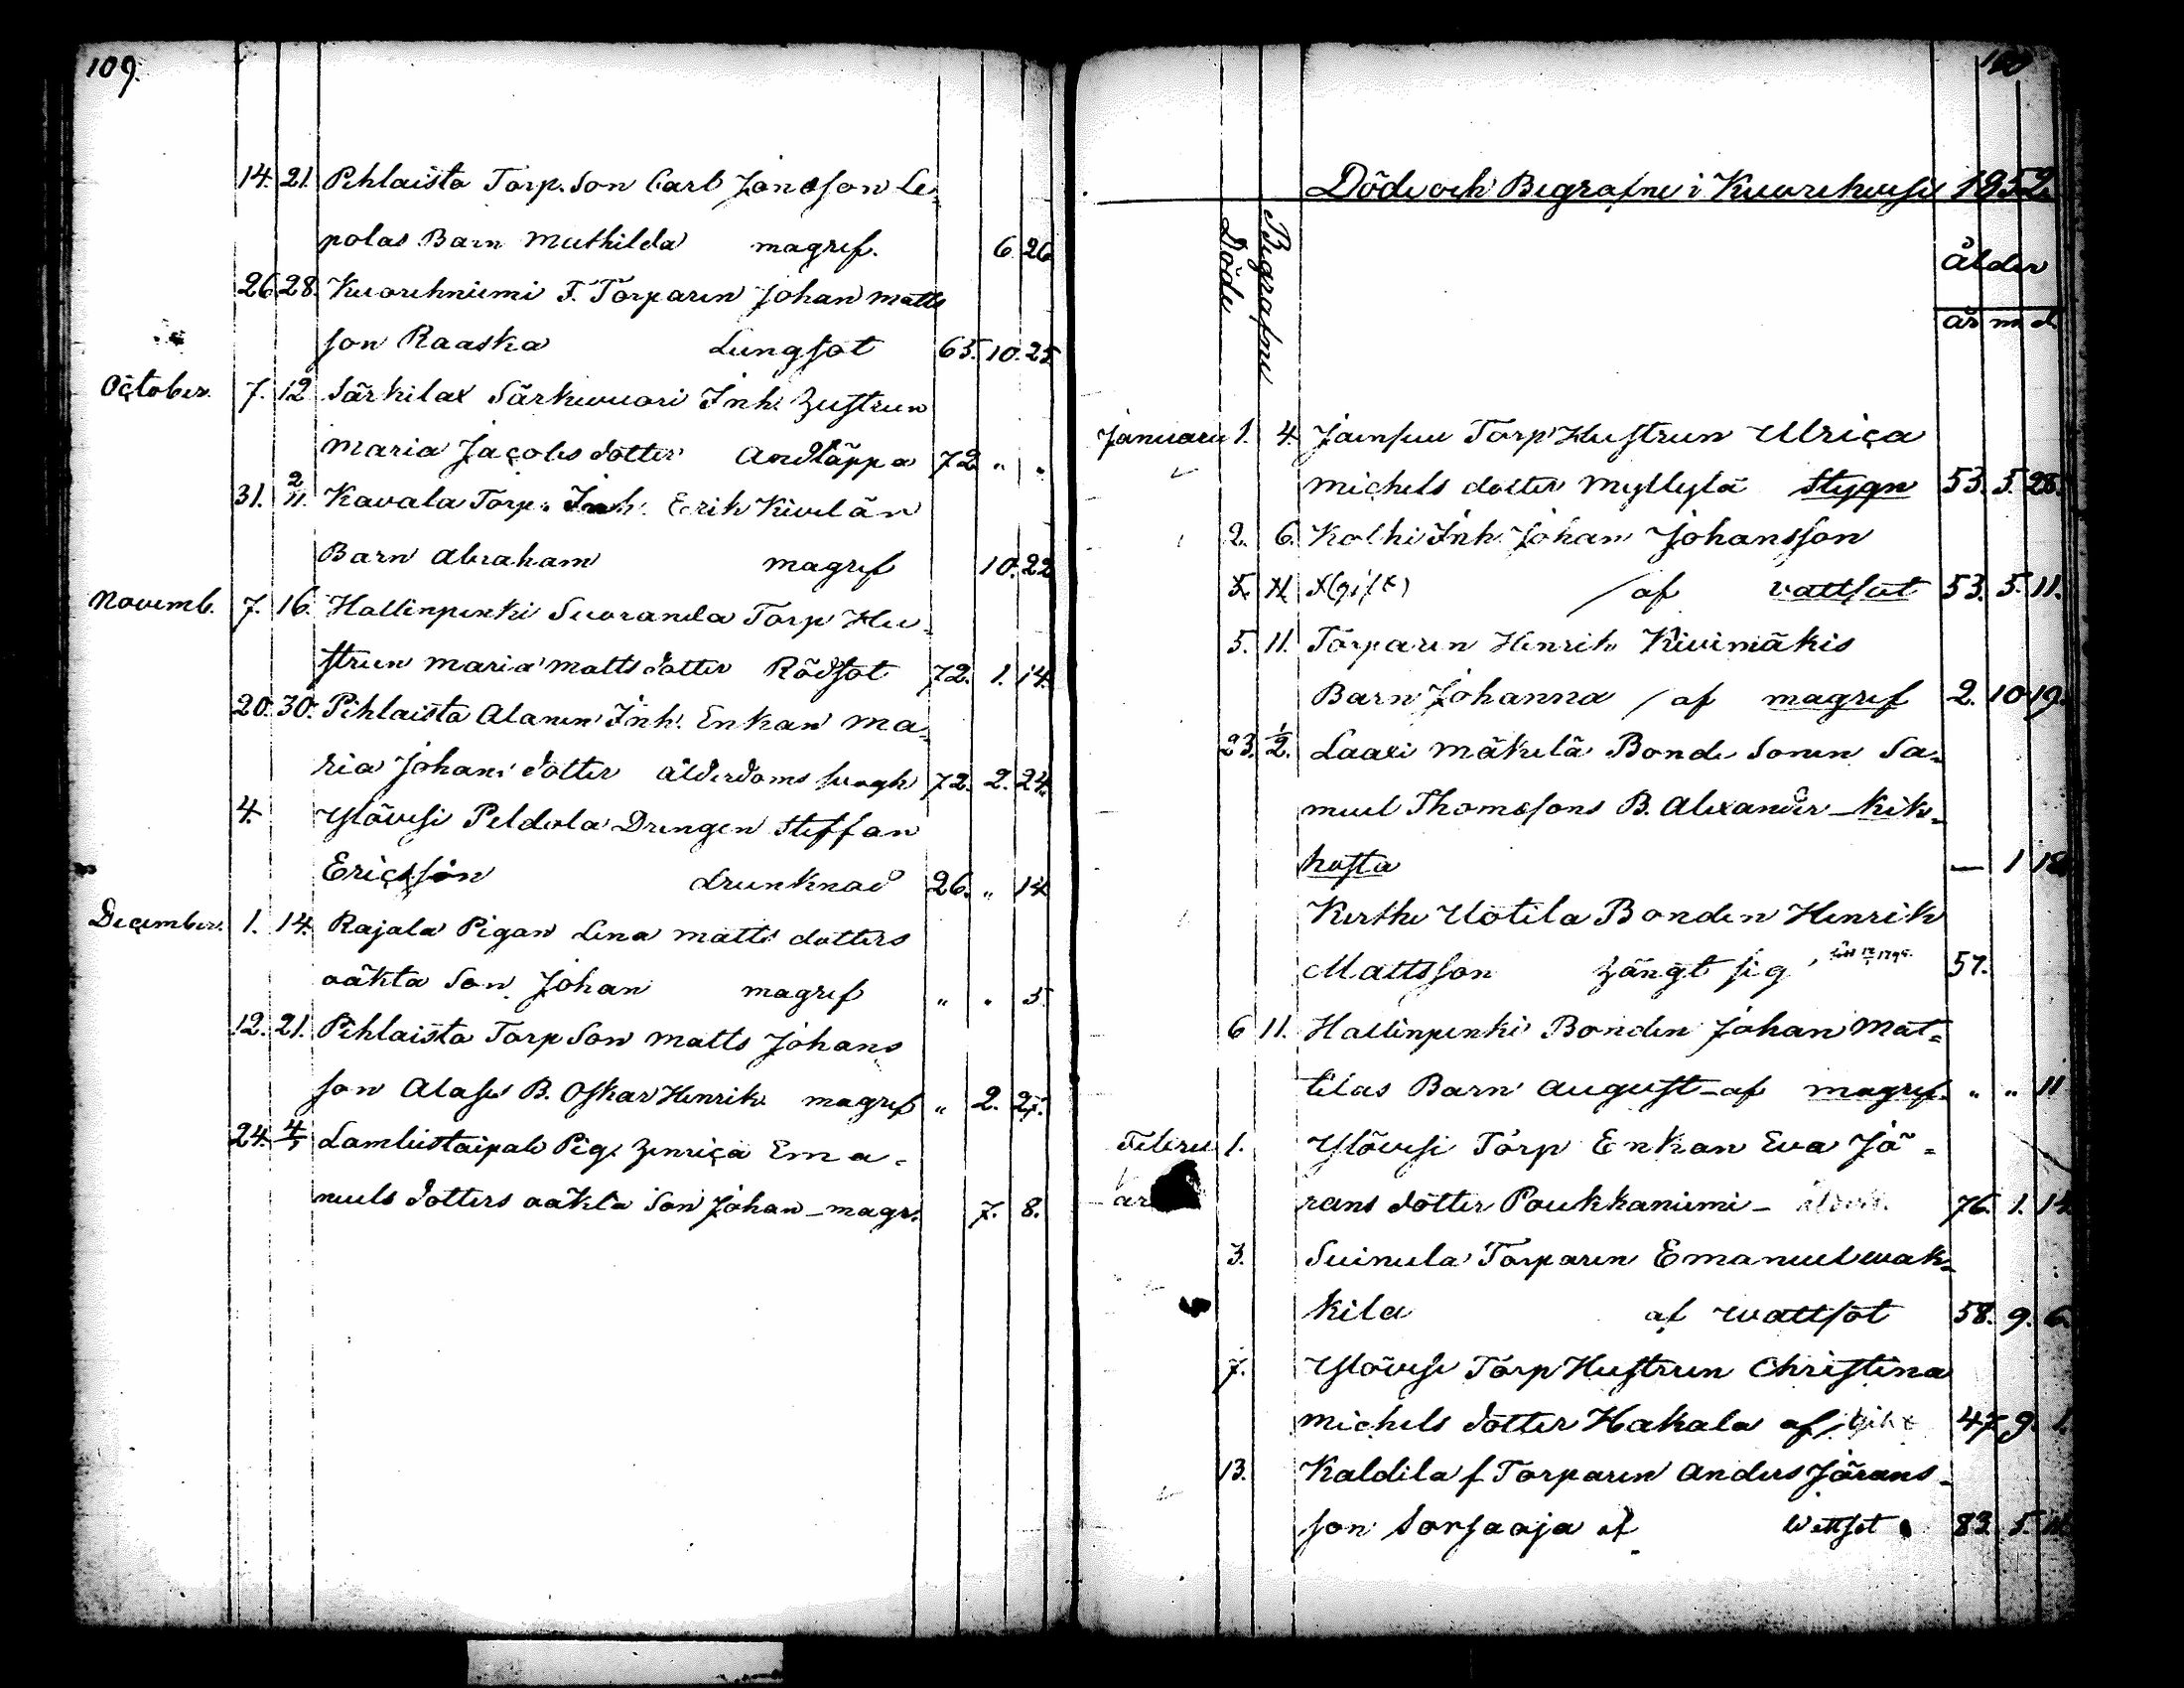 109.
14. 21. Pihlaisto Torp. Son Carl Jonsson Le-
polas Barn Mathilda magref. 6 26
26. 28. Kuorehniemi F. Torparen Johan Matts
son Raaska Lungsot 65. 10. 25
October. 7. 12 Särkilax Särkivuori Inh. Hustrun
Maria Jacobs dotter Andtäppa 72 " "
31. 2/11. Kavala Torp. Inh. Erik Kivelän
Barn Abraham magref 10. 22
Novemb. 7. 16. Hallinpenki Suoranda Torp Hu-
strun Maria Matts dotter Rödsot 72. 1. 14.
20. 30. Pihlaisto Alanen Inh. Enkan Ma-
ria Johans dotter ålderdoms svagh 72. 2. 24.
4. Ylövesi Peldola Drengen Steffan
Ericsson Drunknad 26. " 14
December. 1. 14. Rajala Pigan Lena Matts dotters
oäkta Son Johan magref " " 5.
12. 21. Pihlaisto Torp Son Matts Johans
son Alases B. Oskar Henrik magref " 2. 27.
24. 4/1 Lambistaipale Pig. Henrica Ema-
nuels dotters oäkta Son Johan - magr. 7. 8.
Döde och Begrafne i Kuorehvesi 1852
Döde Begrafne
ålder
år m d.
Januari 1. 4. Jamsen Torp Hustrun Ulrica
Michels dotter Myllylä Stygn 53. 5. 28.
2. 6. Kolhi Inh. Johan Johansson
(gift) af vattsot 53. 5. 11.
5. 11. Torparen Henrik Kivimäkis
Barn Johanna af magref 2. 10 19.
23. 1/2. Laari Mäkelä Bonde Sonen Sa-
muel Thomssons B. Alexander - Kik-
hosta — 1 18
Kerthe Uotila Bonden Henrik
Mattsson Hängt sig, 57.
6 11. Hallinpenki Bonden Johan Mat-
tilas Barn August - af magref. " " 11
Febru 1. Ylövesi Torp Enkan Eva Jö-
ar
rans dotter Poukkaniemi - 76. 1. 14
3. Suinula Torparen Emanuel Wak-
kila af Wattsot 58. 9. 6.
7. Ylövesi Torp Hustrun Christina
Michels dotter Hakala af 47 9. 1.
13. Kaldila f. Torparen Anders Jörans-
son Sorsaoja af Wattsot 83. 5.